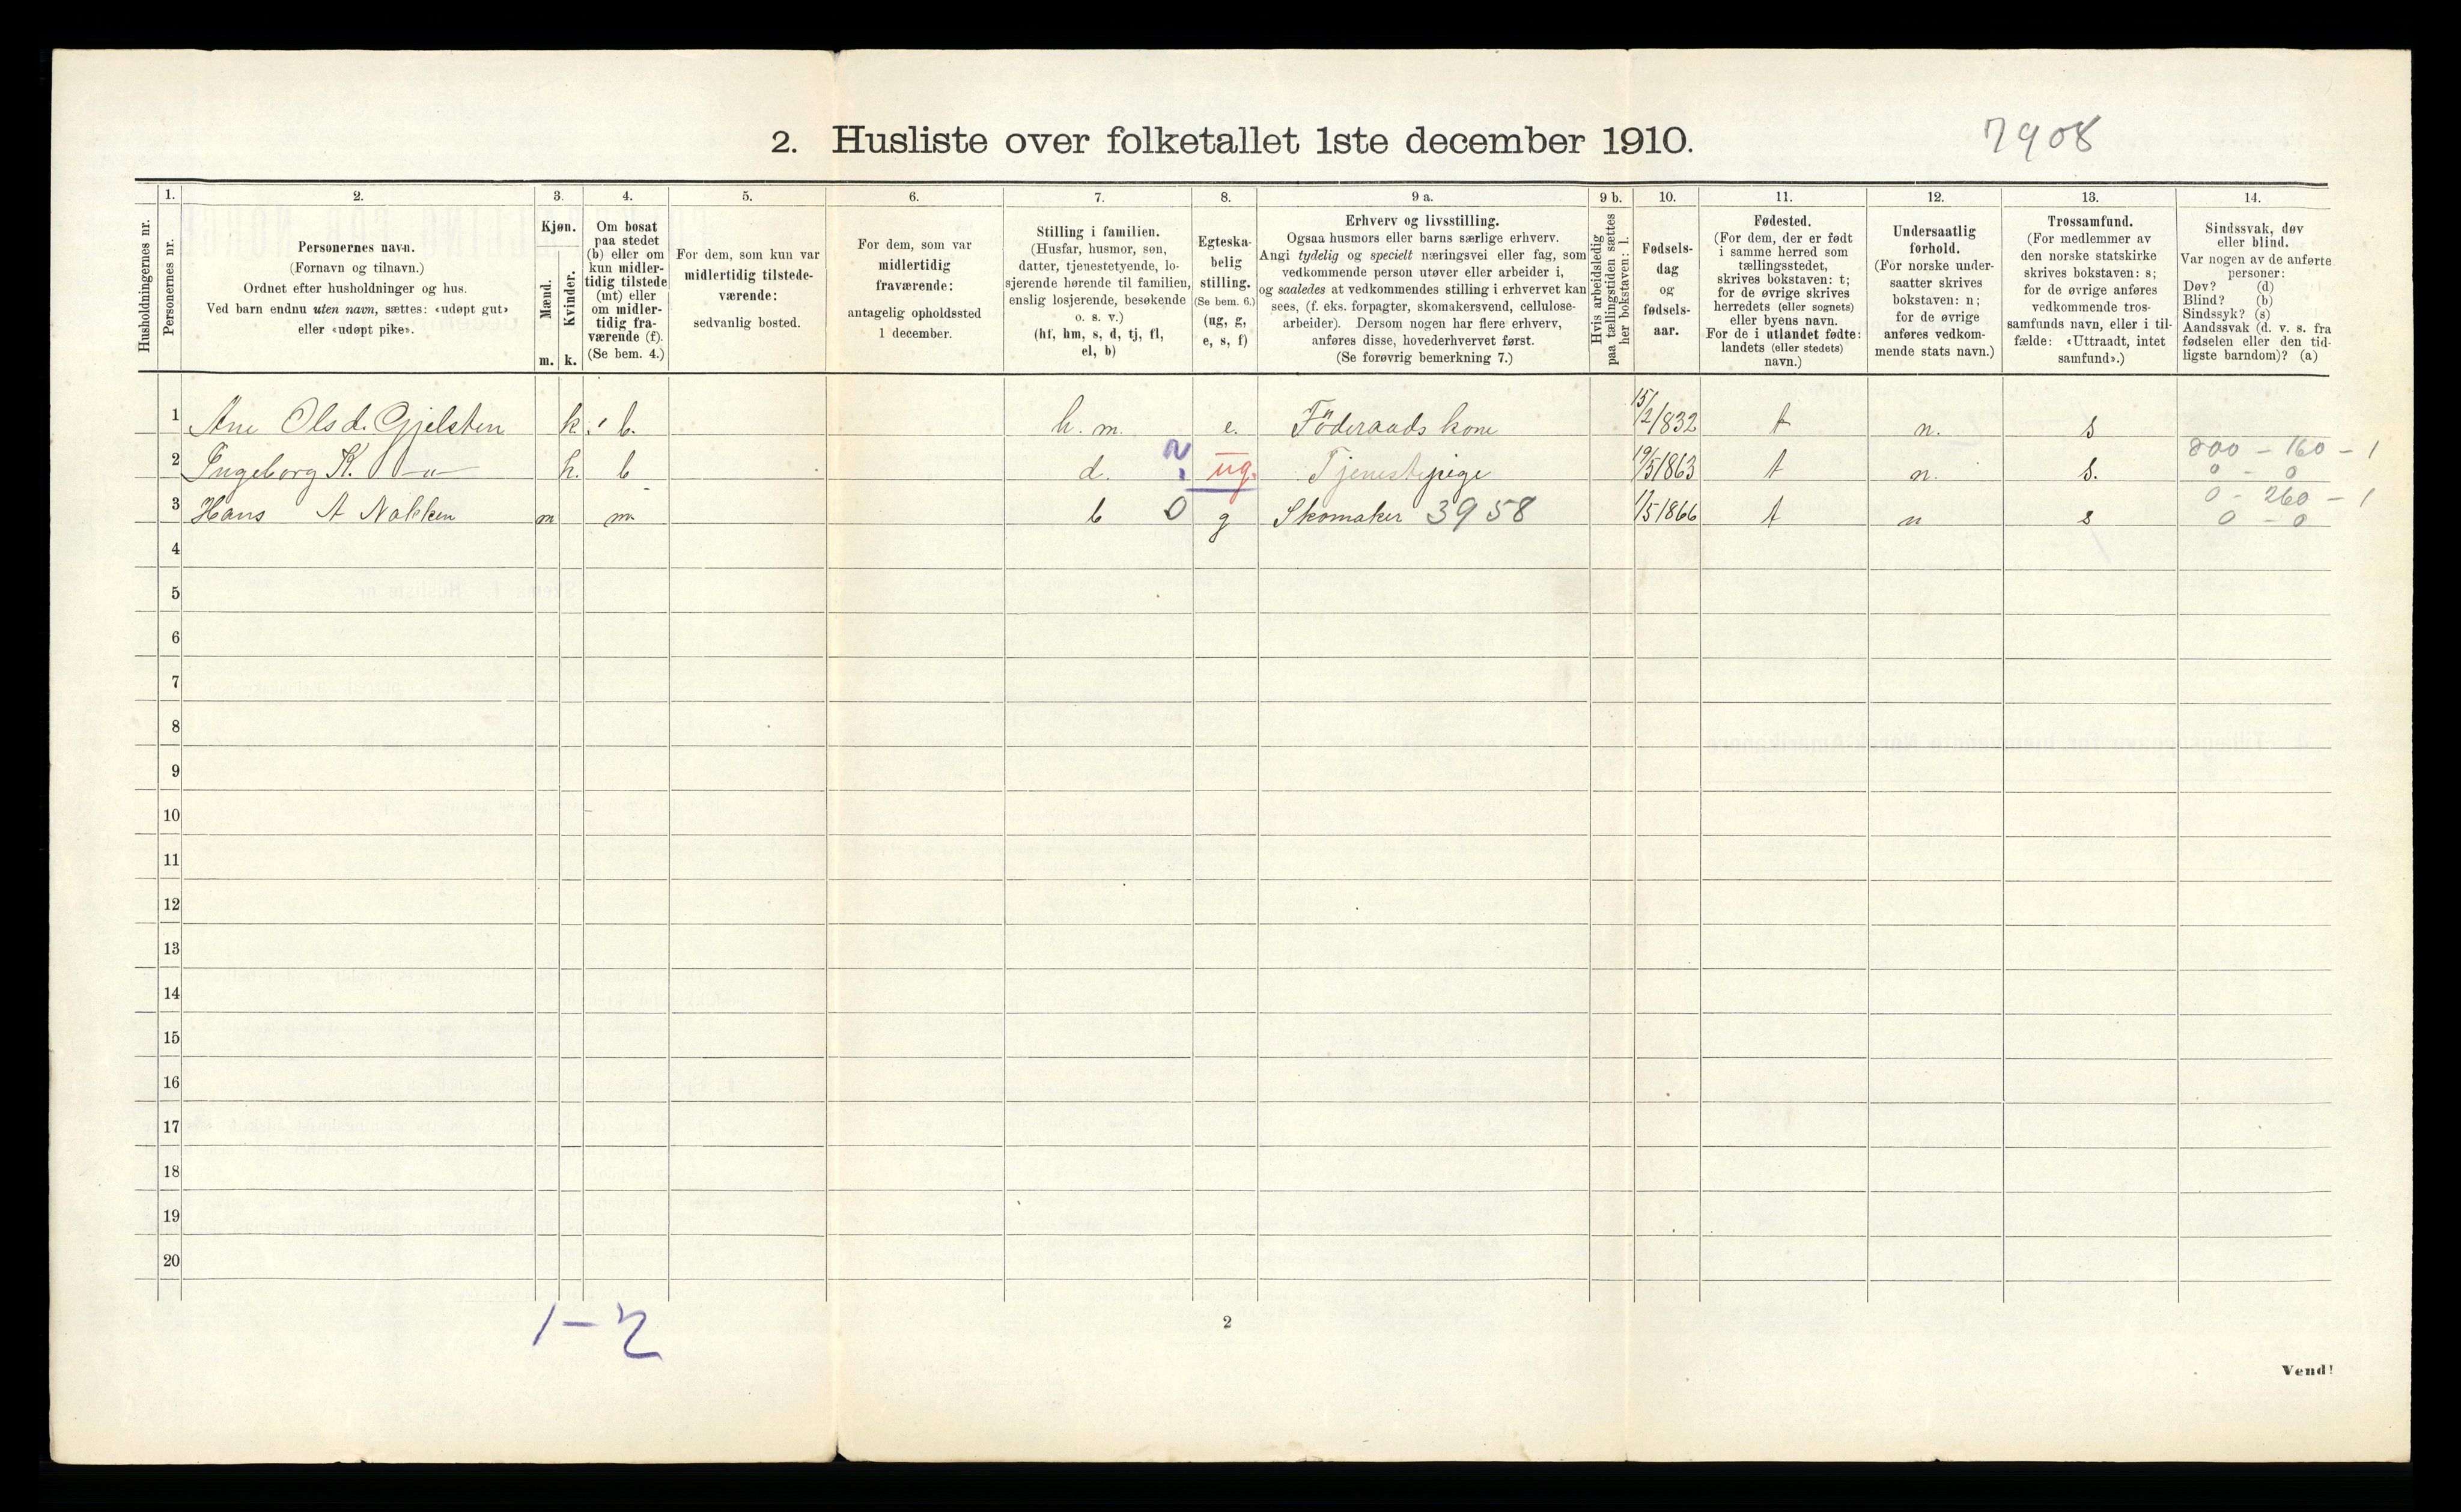 2. Husliste over folketallet 1ste december 1910.
7908
Husholdningernes nr.
1.
Personernes nr.
2.
Personernes navn.
(Fornavn og tilnavn.)
Ordnet efter husholdninger og hus.
Ved barn endnu uten navn, sættes: «udøpt gut»
eller «udøpt pike».
3.
Kjøn.
Mænd.
Kvinder.
m. k.
4.
Om bosat
paa stedet
(b) eller om
kun midler-
tidig tilstede
(mt) eller
om midler-
tidig fra-
værende (f).
(Se bem. 4.)
5.
For dem, som kun var
midlertidig tilstede-
værende:
sedvanlig bosted.
6.
For dem, som var
midlertidig
fraværende:
antagelig opholdssted
1 december.
7.
Stilling i familien.
(Husfar, husmor, søn,
datter, tjenestetyende, lo-
sjerende hørende til familien,
enslig losjerende, besøkende
o. s. v.)
(hf, hm, s, d, tj, fl,
el, b)
8.
Egteska-
belig
stilling.
(Se bem. 6.)
(ug, g,
e, s, f)
9 a.
Erhverv og livsstilling.
Ogsaa husmors eller barns særlige erhverv.
Angi tydelig og specielt næringsvei eller fag, som
vedkommende person utøver eller arbeider i,
og saaledes at vedkommendes stilling i erhvervet kan
sees, (f. eks. forpagter, skomakersvend, cellulose-
arbeider). Dersom nogen har flere erhverv,
anføres disse, hovederhvervet først.
(Se forøvrig bemerkning 7.)
9 b.
Hvis arbeidsledig
paa tællingstiden sættes
her bokstaven: l.
10.
Fødsels-
dag
og
fødsels-
aar.
11.
Fødested.
(For dem, der er født
i samme herred som
tællingsstedet,
skrives bokstaven: t;
for de øvrige skrives
herredets (eller sognets)
eller byens navn.
For de i utlandet fødte:
landets (eller stedets)
navn.)
12.
Undersaatlig
forhold.
(For norske under-
saatter skrives
bokstaven: n;
for de øvrige
anføres vedkom-
mende stats navn.)
13.
Trossamfund.
(For medlemmer av
den norske statskirke
skrives bokstaven: s;
for de øvrige anføres
vedkommende tros-
samfunds navn, eller i til-
fælde: «Uttraadt, intet
samfund».)
14.
Sindssvak, døv
eller blind.
Var nogen av de anførte
personer:
Døv? (d)
Blind? (b)
Sindssyk? (s)
Aandssvak (d. v. s. fra
fødselen eller den tid-
ligste barndom)? (a)
1 Ane Olsd. Gjelsten k. b. h. m. e. Föderaads kone 15/2/832 t n. s
800 - 160 - 1
2 Ingeborg K. —"— k. b d. ug. Tjenestepige 19/5 1863 t n. s. 0 - 0
0 - 260 - 1
3 Hans A Nakken m m b 0 g Skomaker 3958 1/5 1866 t n s 0 - 0
4
5
6
7
8
9
10
11
12
13
14
15
16
17
18
19
20
1-2
2
Vend!